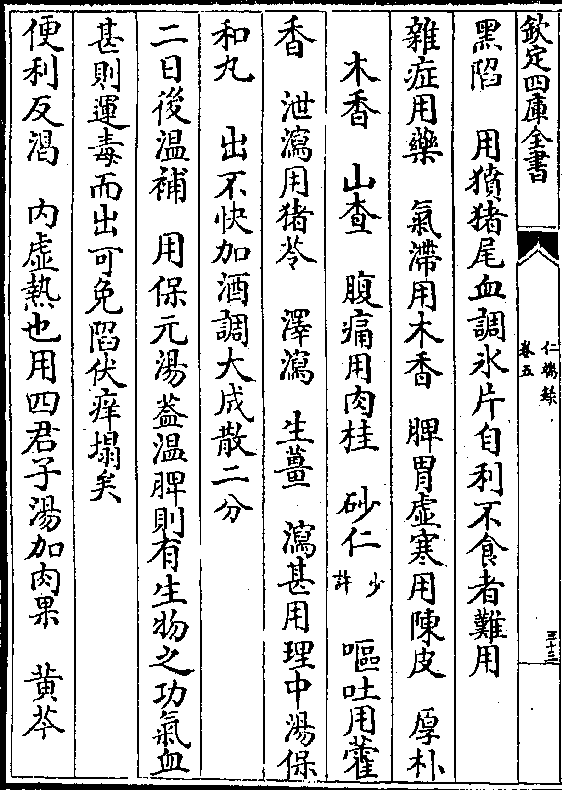 欽定四庫全書
仁端錄
卷五
三十三
黑陷　用豶猪尾血調氷片自利不食者難用
雜症用藥　氣滯用木香　脾胃虚寒用陳皮　厚朴
木香　山查　腹痛用肉桂　砂仁少許　嘔吐用藿
香　泄瀉用猪苓　澤瀉　生薑　瀉甚用理中湯保
和丸　出不快加酒調大成散二分
二日後温補　用保元湯葢温脾則有生物之功氣血
甚則運毒而出可免陷伏痒塌矣
便利反渴　内虚熱也用四君子湯加肉果　黄芩